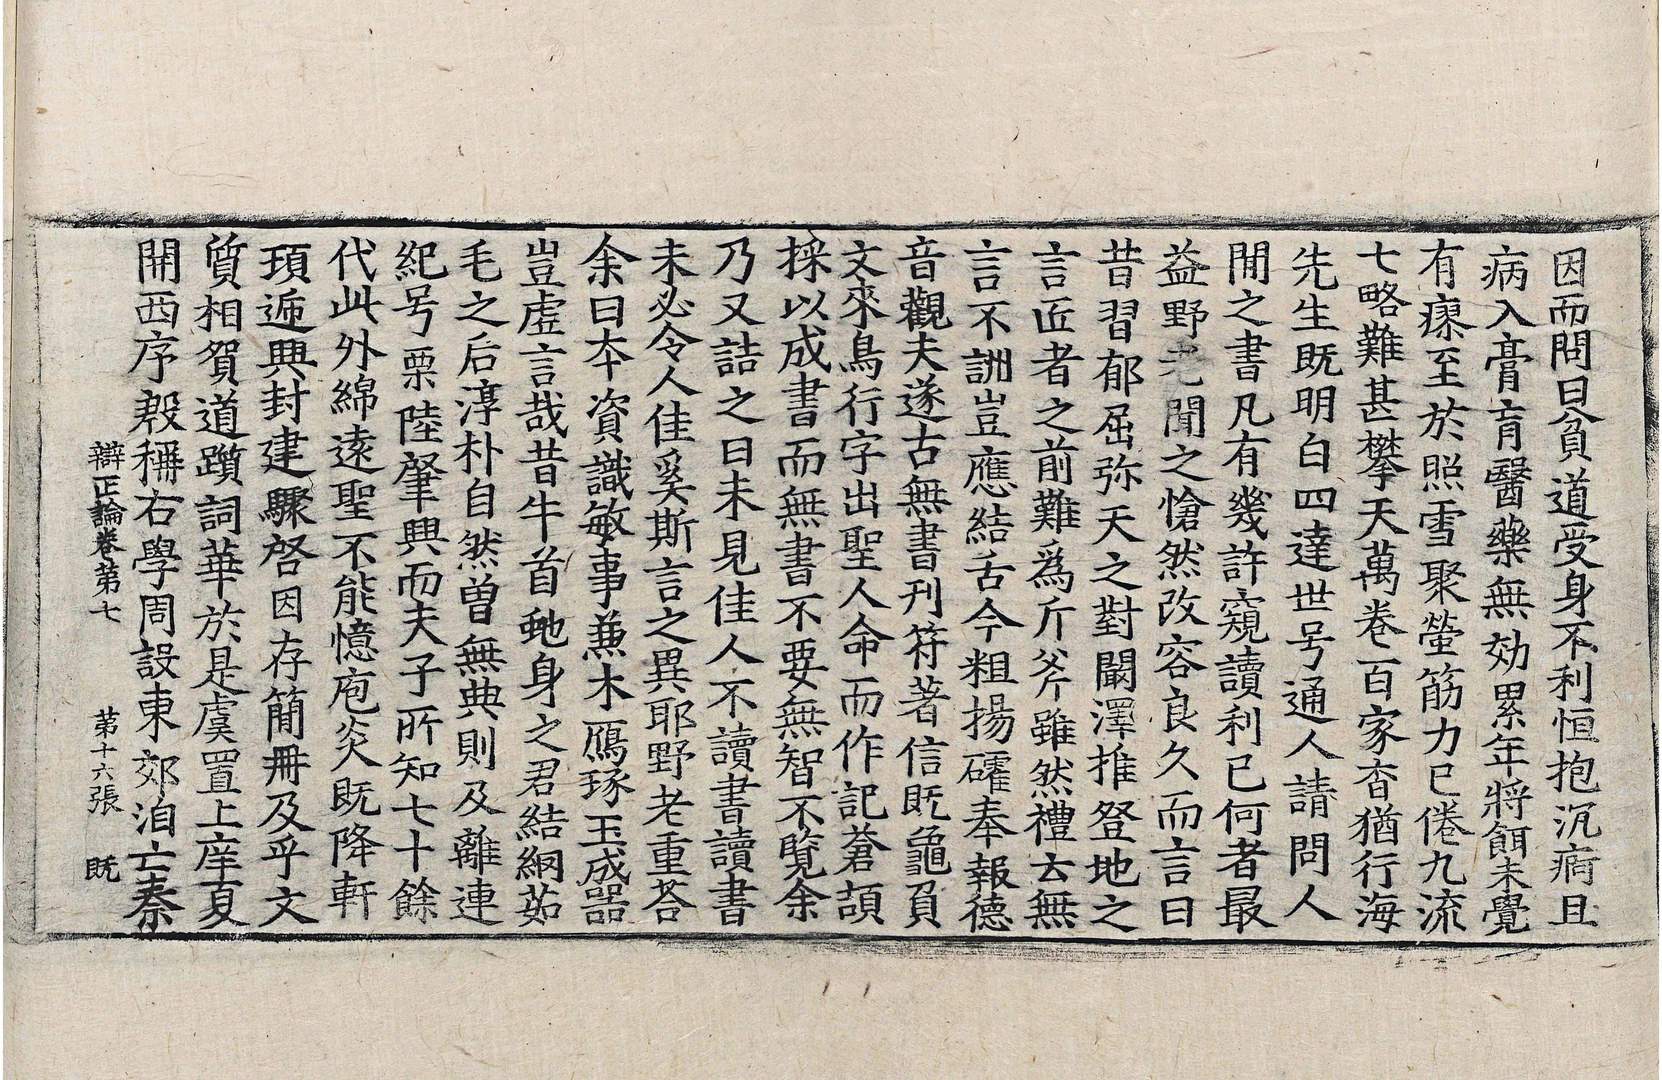 因而問曰貧道受身不利恒抱沉痾且
病入膏肓醫藥無効累年將餌未覺
有瘳至於照雪聚螢筋力已倦九流
七略難甚攀天萬卷百家杳猶行海
先生既明白四達世号通人請問人
間之書凡有幾許窺讀利已何者最
益野老聞之愴然改容良久而言曰
昔習郁屈弥天之對闞澤推登地之
言匠者之前難為斤斧雖然禮去無
言不詶豈應結舌今粗揚㩁奉報德
音觀夫遂古無書刊符著信既龜負
文來鳥行字出聖人命而作記蒼頡
採以成書而無書不要無智不覽余
乃又詰之曰未見佳人不讀書讀書
未必令人佳奚斯言之異耶野老重荅
余曰夲資識敏事兼木鴈琢玉成器
豈虛言哉昔牛首虵身之君結網茹
毛之后淳朴自然曽無典則及離連
紀号栗陸肇興而夫子所知七十餘
代此外綿遠聖不能憶庖炎既降軒
頊遞興封建驟啓因存簡冊及乎文
質相賀道躓詞華於是虞置上庠夏
開西序殷稱右學周設東郊洎亡秦
辯正論卷第七 第十六張 既